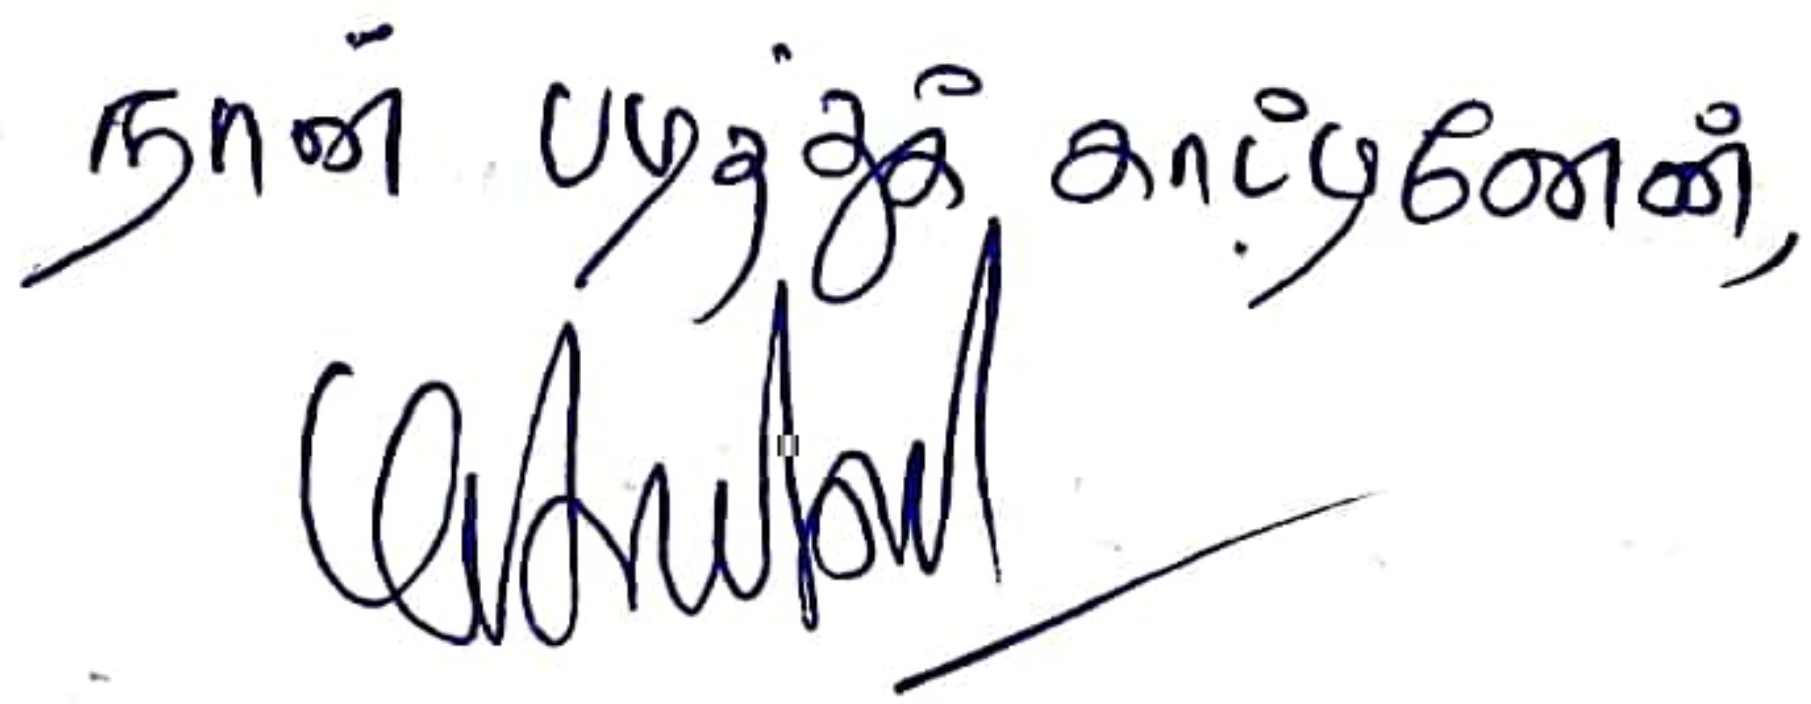 நான் படித்துக் காட்டினேன்,